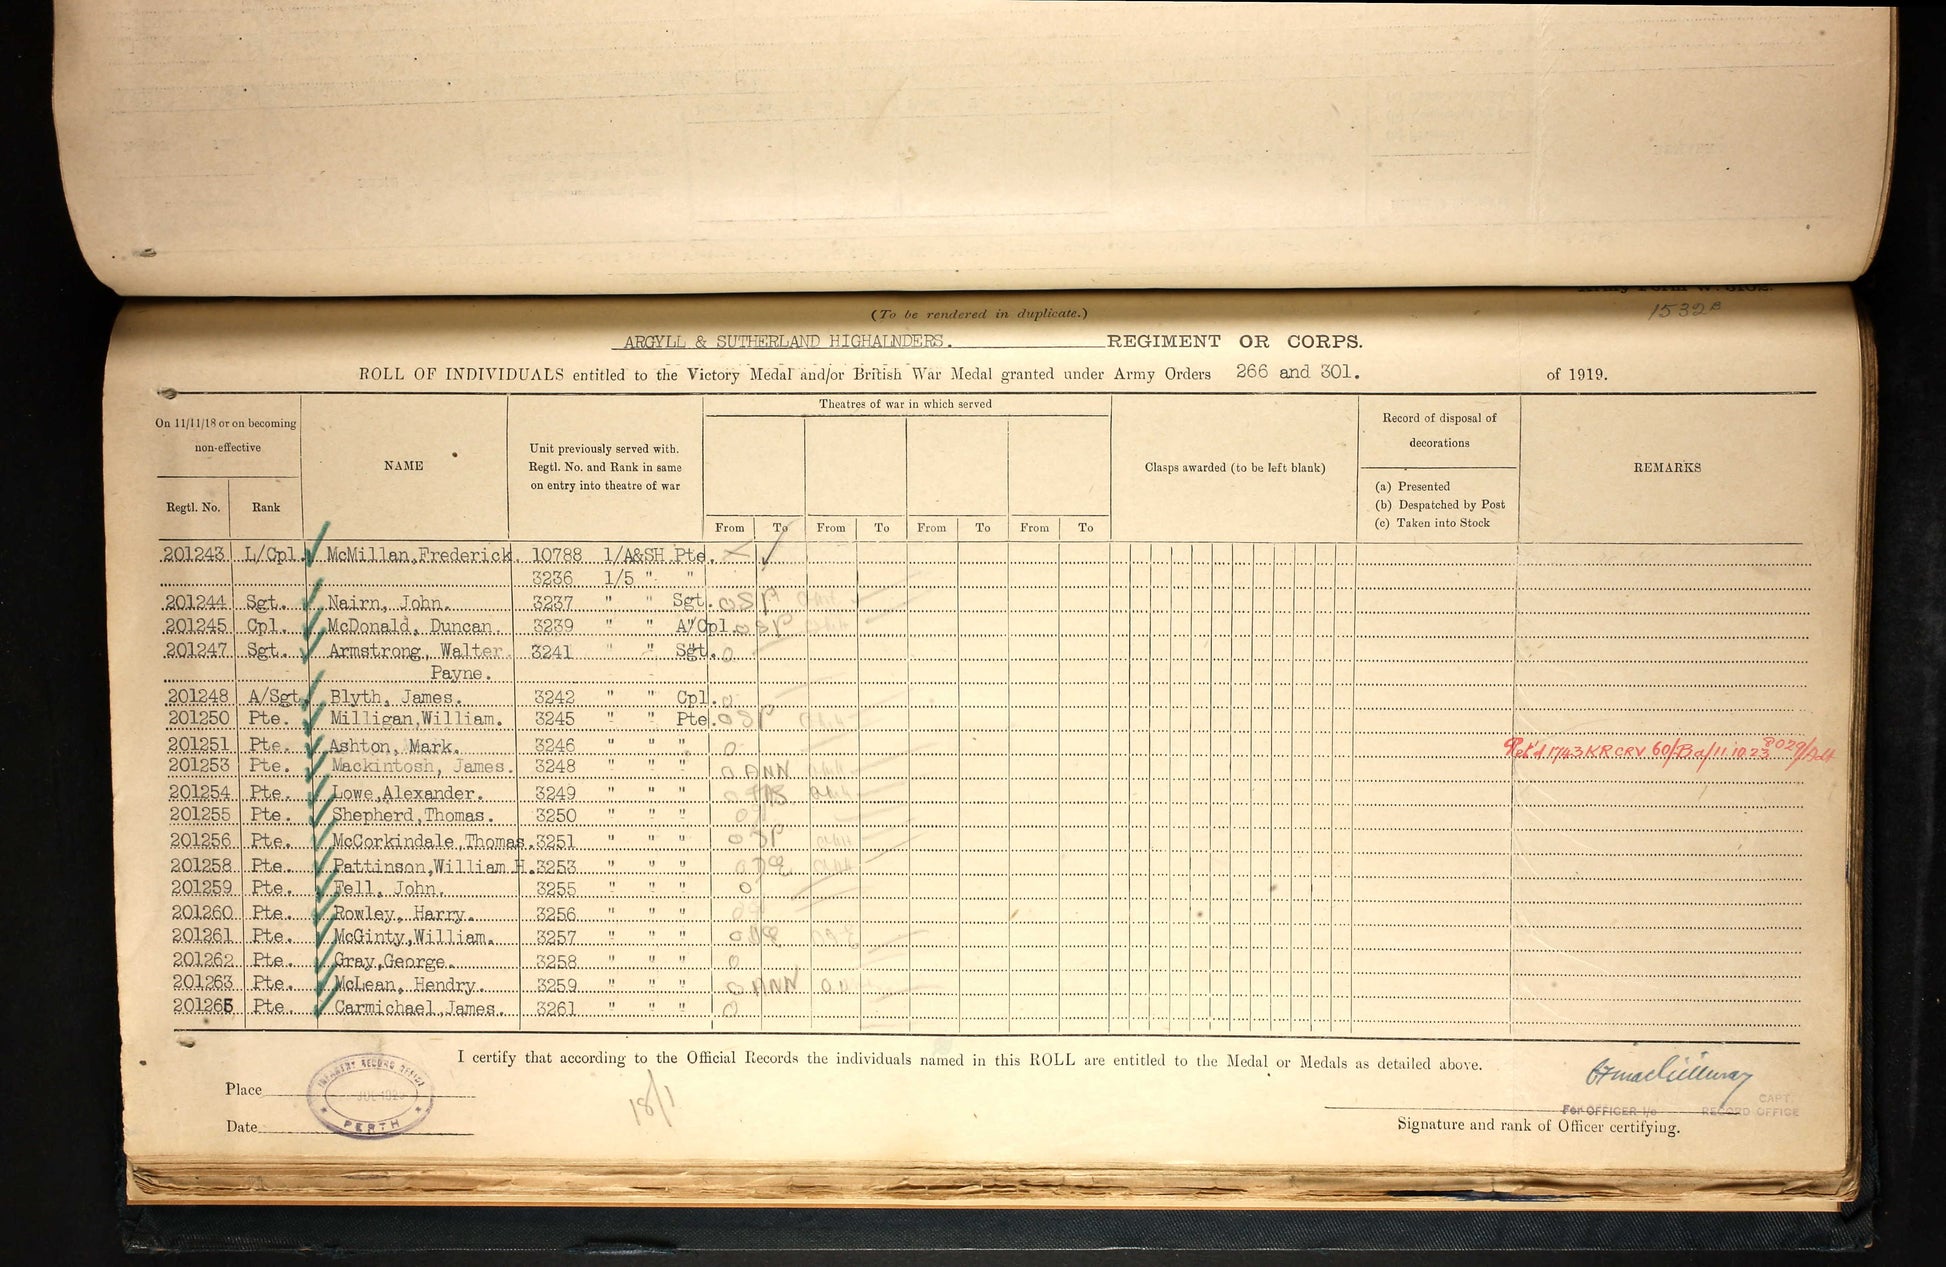 1532B
(To be rendered in duplicate.)
ARGYLL & SUTHERLAND HIGHALNDERS. REGIMENT OR CORPS.
ROLL OF INDIVIDUALS entitled to the Victory Medal and/or British War Medal granted under Army Orders 266 and 301. of 1919.
On 11/11/18 or on becoming non-effective
Regtl. No. Rank
NAME
Unit previously served with.
Regtl. No. and Rank in same
on entry into theatre of war
Theatres of war in which served
From To From To From To From To
Clasps awarded (to be left blank)
Record of disposal of
decorations
(a) Presented
(b) Despatched by Post
(c) Taken into Stock
REMARKS
201243 L/Cpl. McMillan,Frederick. 10788 1/A&SH Pte.
3236 1/5 " "
201244 Sgt. Nairn, John. 3237 " " Sgt.
201245 Cpl. McDonald, Duncan. 3239 " " A/Cpl.
201247 Sgt. Armstrong, Walter 3241 " " Sgt.
Payne.
201248 A/Sgt. Blyth, James. 3242 " " Cpl.
201250 Pte. Milligan,William. 3245 " " Pte.
201251 Pte. Ashton, Mark. 3246 " " "
201253 Pte. Mackintosh, James. 3248 " " "
201254 Pte. Lowe,Alexander. 3249 " " "
201255 Pte. Shepherd,Thomas. 3250 " " "
201256 Pte. McCorkindale,Thomas. 3251 " " "
201258 Pte. Pattinson,William H. 3253 " " "
201259 Pte. Fell, John. 3255 " " "
201260 Pte. Rowley, Harry. 3256 " " "
201261 Pte. McGinty,William. 3257 " " "
201262 Pte. Gray,George. 3258 " " "
201263 Pte. McLean, Hendry. 3259 " " "
201265 Pte. Carmichael,James. 3261 " " "
I certify that according to the Official Records the individuals named in this ROLL are entitled to the Medal or Medals as detailed above.
Place
INFANTRY RECORD OFFICE
PERTH
Date
18/1
CAPT.
For OFFICER i/c RECORD OFFICE
Signature and rank of Officer certifying.